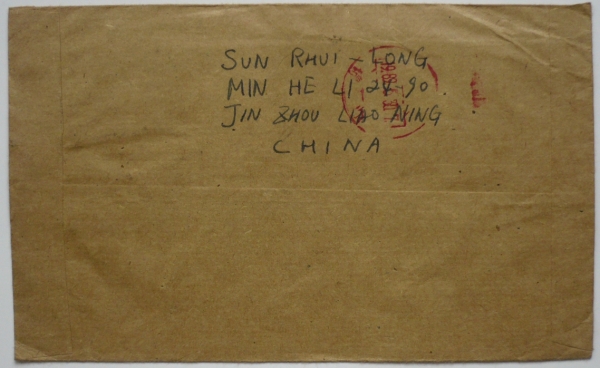 SUN RHUI - LONG
MIN HE LI 24 90.
JIN ZHOU LIAO NING
CHINA